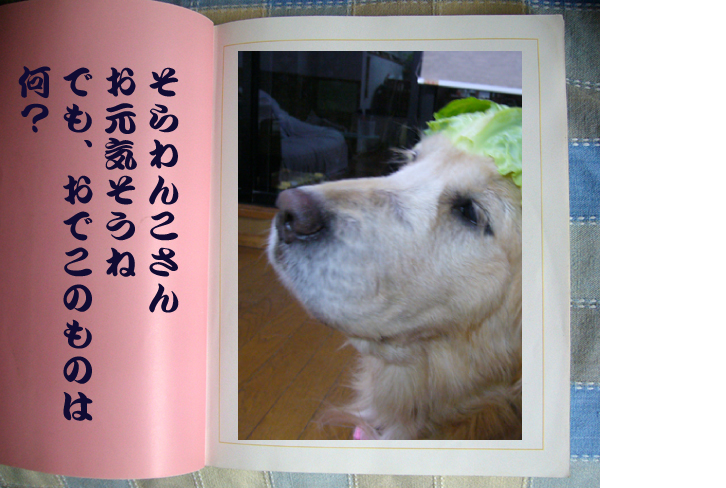 そらわんこさん
お元気そうね
でも、おでこのものは
何？